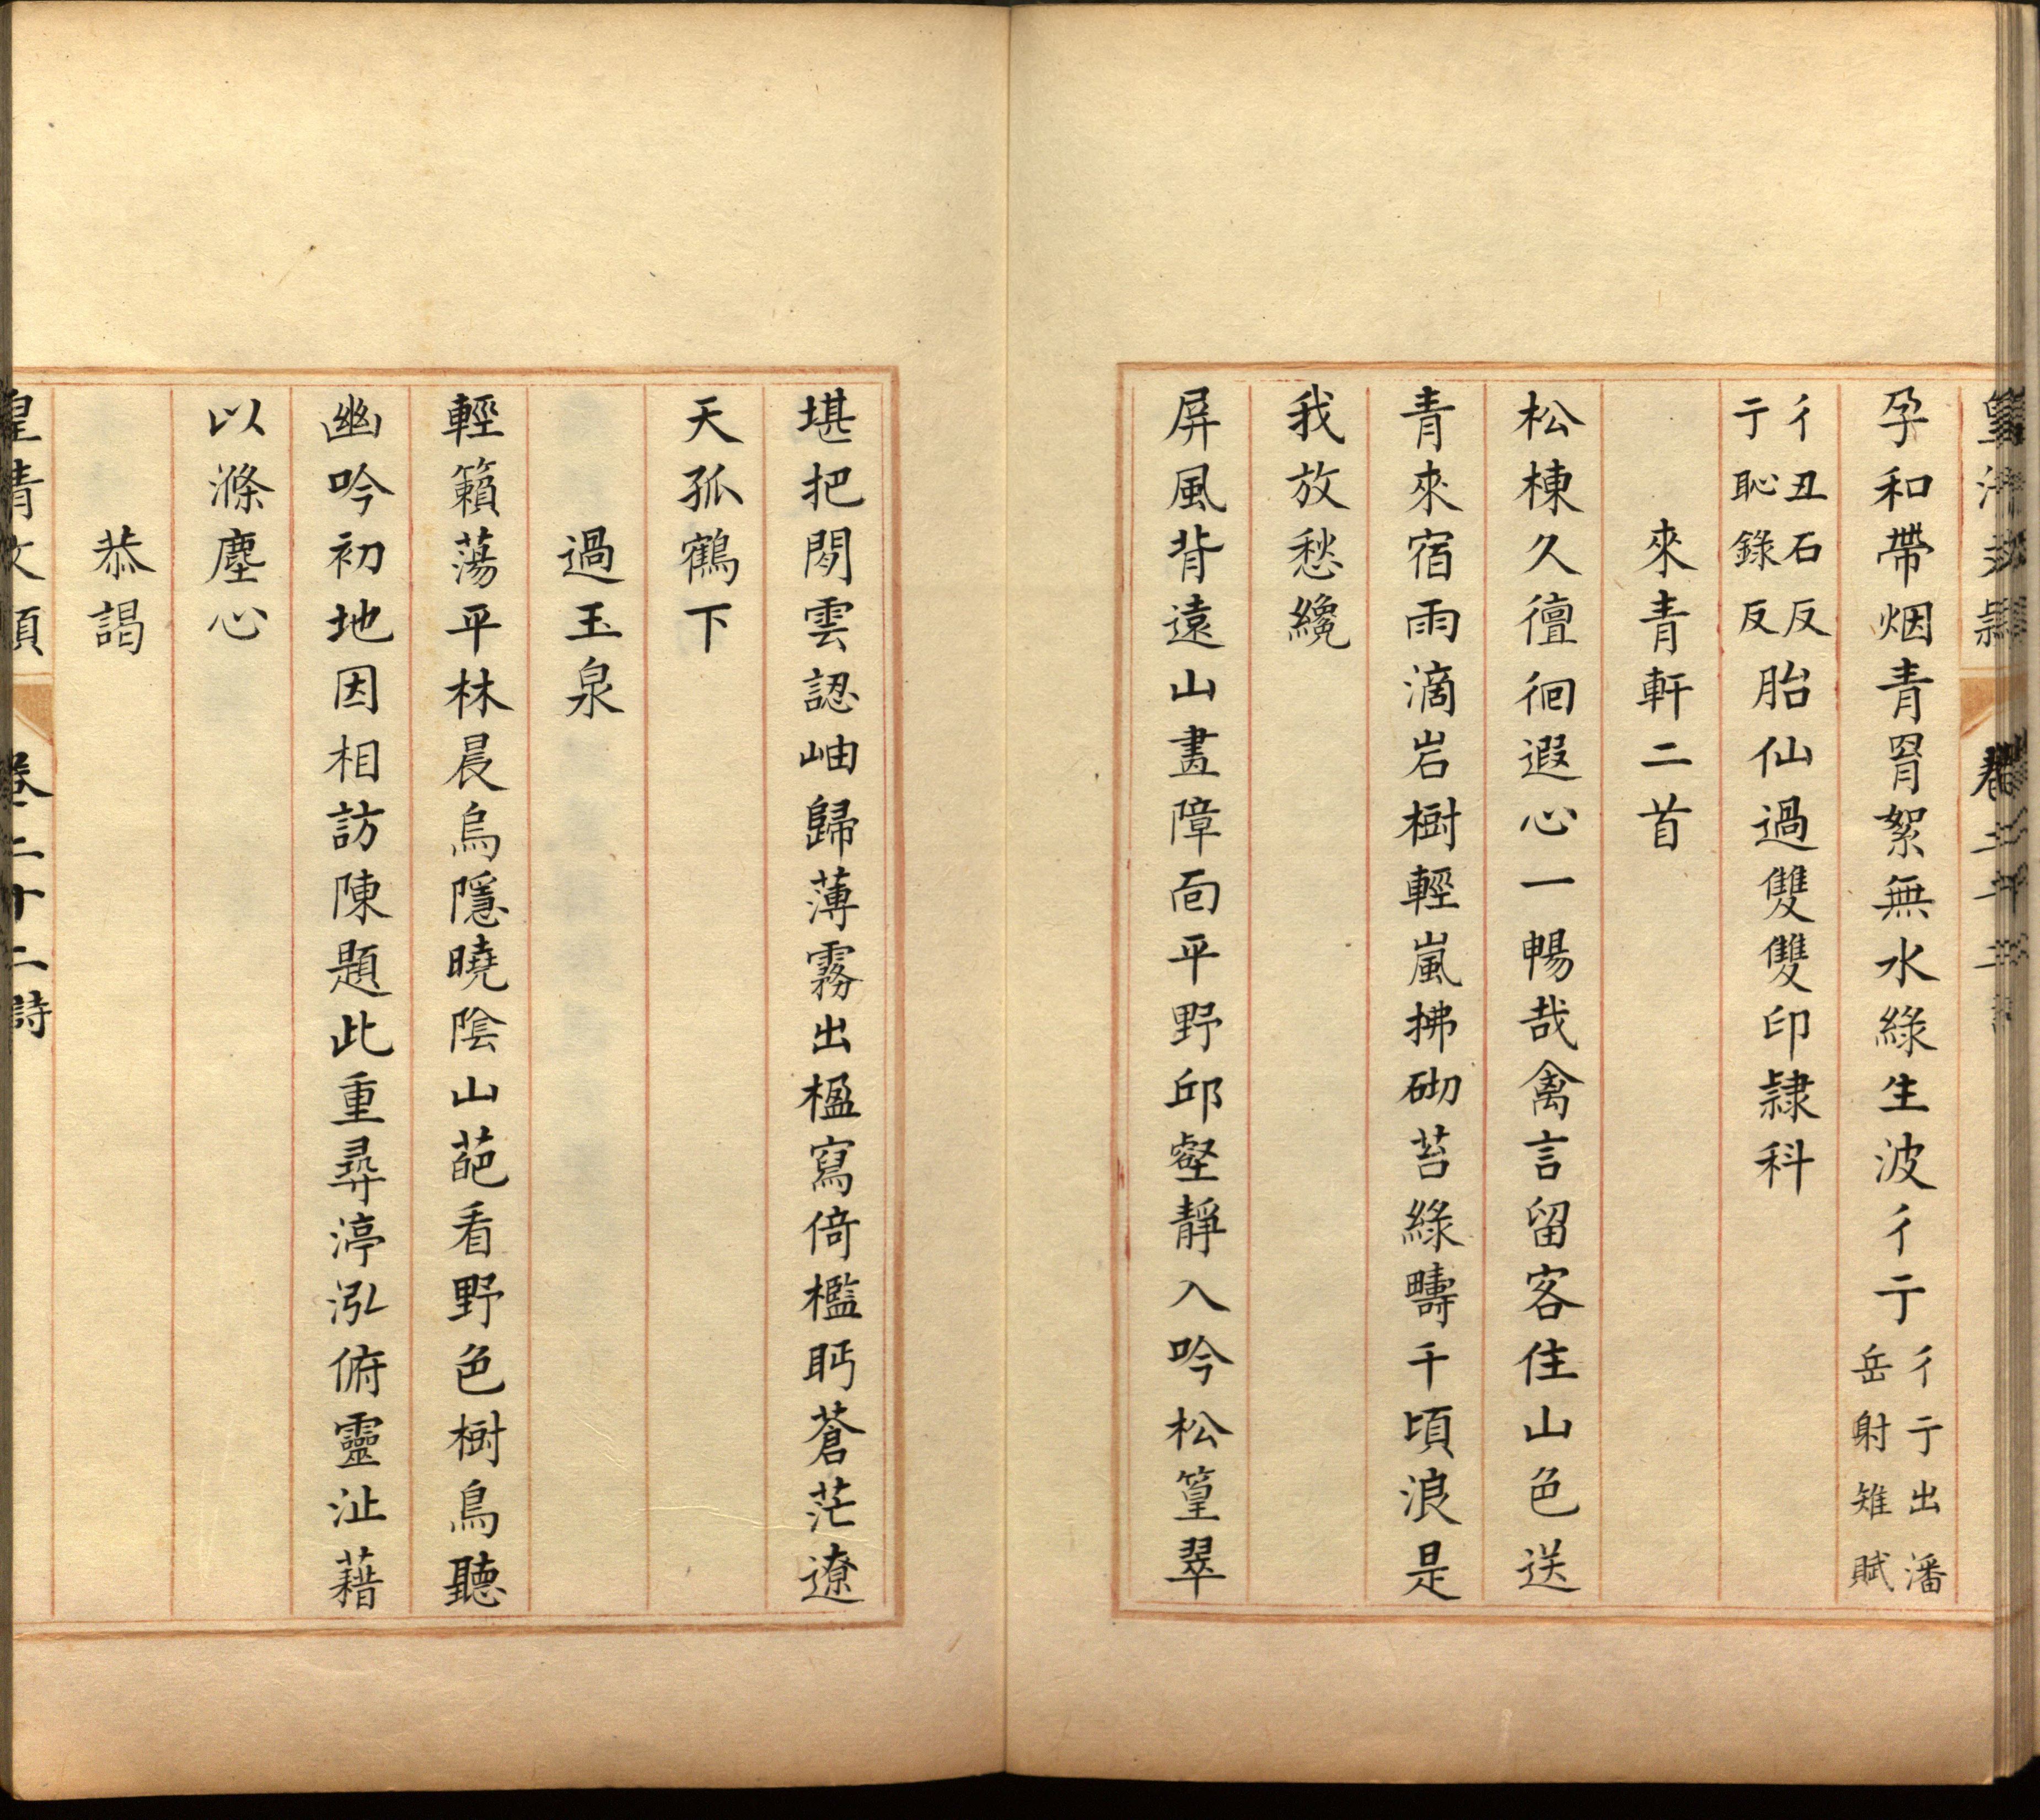 孕和帶烟青罥絮無水綠生波彳亍彳亍出潘岳射雉賦
彳丑石反亍恥錄反胎仙過雙雙印隷科
來青軒二首
松棟久儃徊遐心一暢哉禽言留客住山色送
青來宿雨滴岩樹輕嵐拂砌苔綠疇千頃浪是
我放愁纔
屏風背遠山畫障面平野邱壑靜入吟松篁翠
堪把閒雲認岫歸薄霧出楹寫倚檻眄蒼茫遼
天孤鶴下
過玉泉
輕籟蕩平林晨烏隱曉陰山葩看野色樹鳥聽
幽吟初地因相訪陳題此重尋渟泓俯靈沚藉
以滌塵心
恭謁
皇清文頴 卷二十二詩